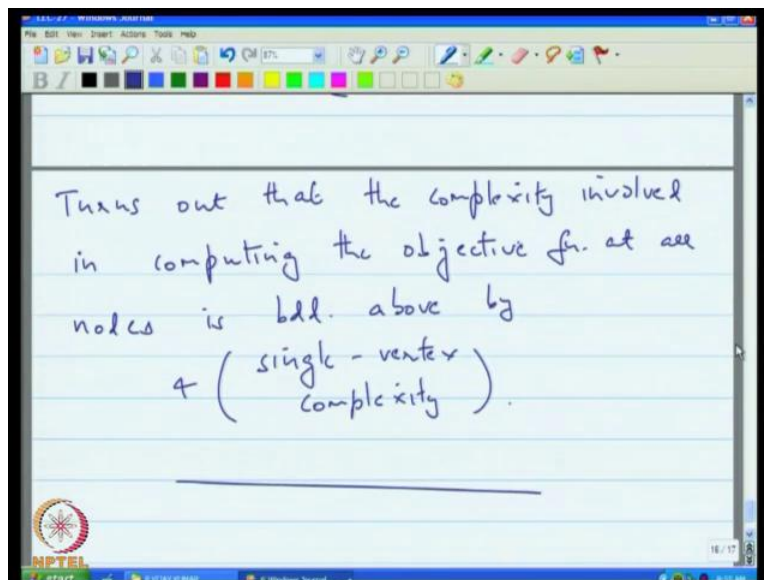 LEC-27 - Windows Journal
File Edit View Insert Actions Tools Help
87%
B I
Turns out that the complexity involved
in computing the objective fn. at all
nodes is bdd. above by
4 ( single-vertex
complexity ).
16 / 17
NPTEL
start
Windows Journal